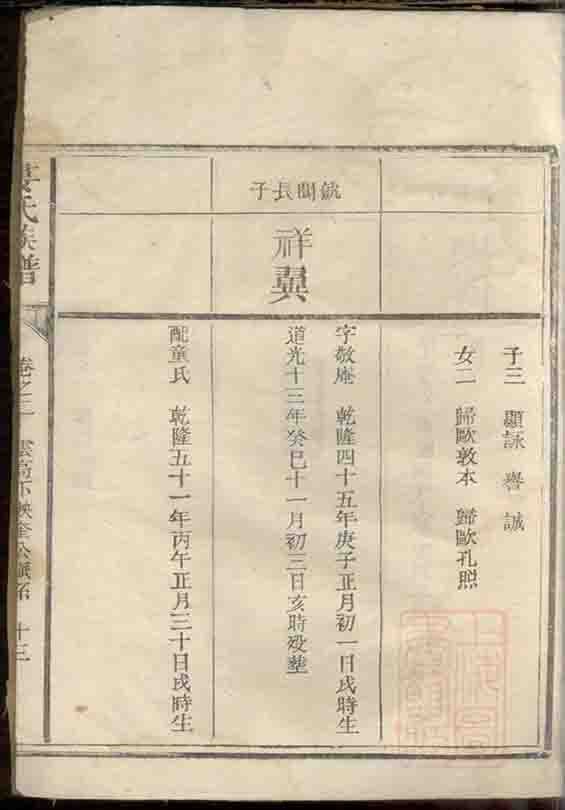 子三 顯詠 譽 誠
女二 歸歐敦本 歸歐孔照
毓閣長子
祥翼
字敬庵 乾隆四十五年庚子正月初一日戌時生
道光十三年癸巳十一月初三日亥時歿塟
配童氏 乾隆五十一年丙午正月三十日戌時生
氏族譜
卷之二
十三